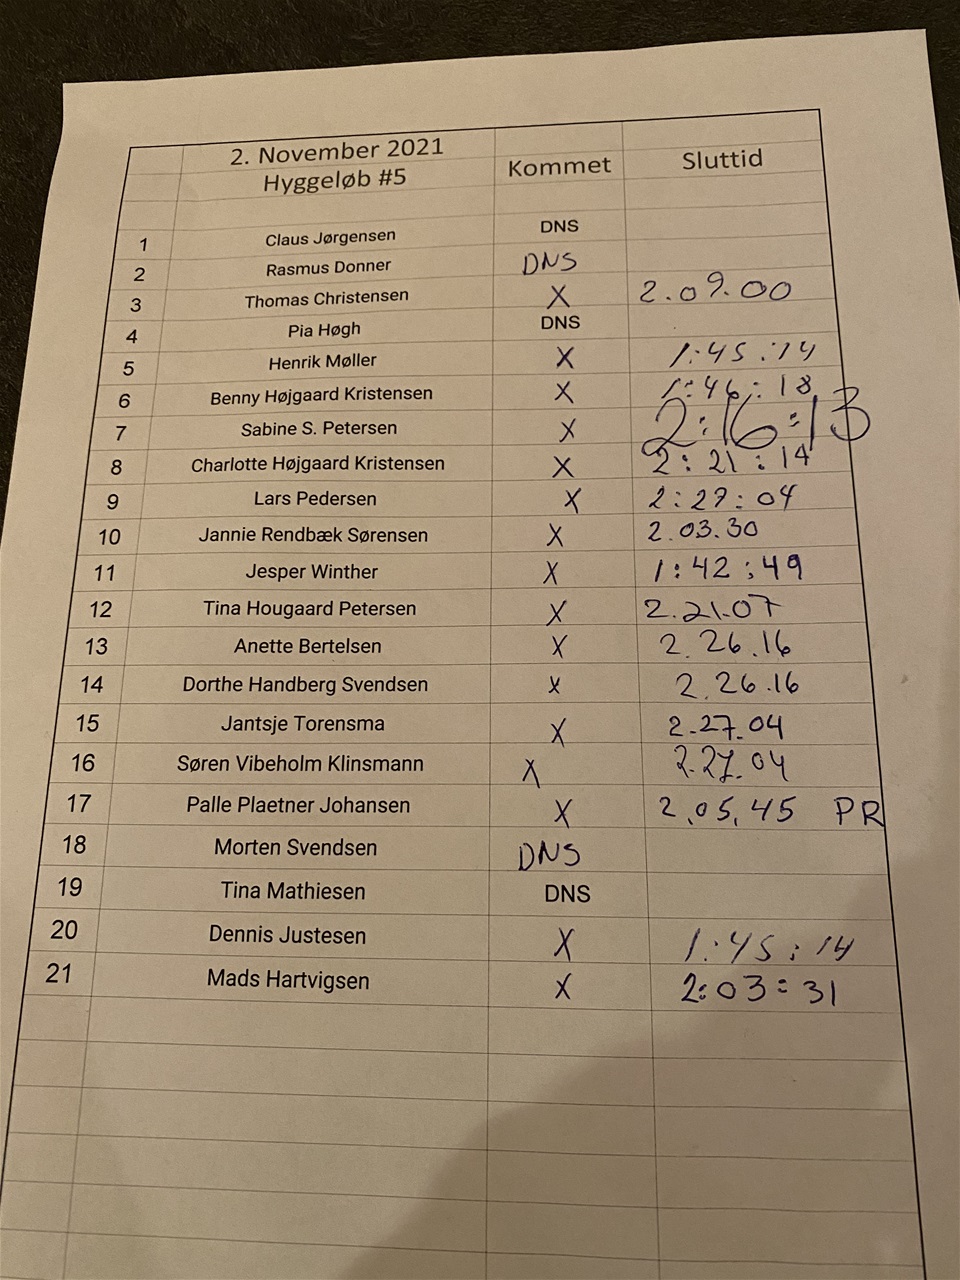 2. November 2021
Hyggeløb #5 Kommet Sluttid
1 Claus Jørgensen DNS
2 Rasmus Donner DNS
3 Thomas Christensen X 2.09.00
4 Pia Høgh DNS
5 Henrik Møller X 1:45:14
6 Benny Højgaard Kristensen X 1:46:18
7 Sabine S. Petersen X 2:16:13
8 Charlotte Højgaard Kristensen X 2:21:14
9 Lars Pedersen X 2:27:04
10 Jannie Rendbæk Sørensen X 2.03.30
11 Jesper Winther X 1:42:49
12 Tina Hougaard Petersen X 2.21.07
13 Anette Bertelsen X 2.26.16
14 Dorthe Handberg Svendsen X 2.26.16
15 Jantsje Torensma X 2.27.04
16 Søren Vibeholm Klinsmann X 2.27.04
17 Palle Plaetner Johansen X 2,05,45 PR
18 Morten Svendsen DNS
19 Tina Mathiesen DNS
20 Dennis Justesen X 1:45:14
21 Mads Hartvigsen X 2:03:31